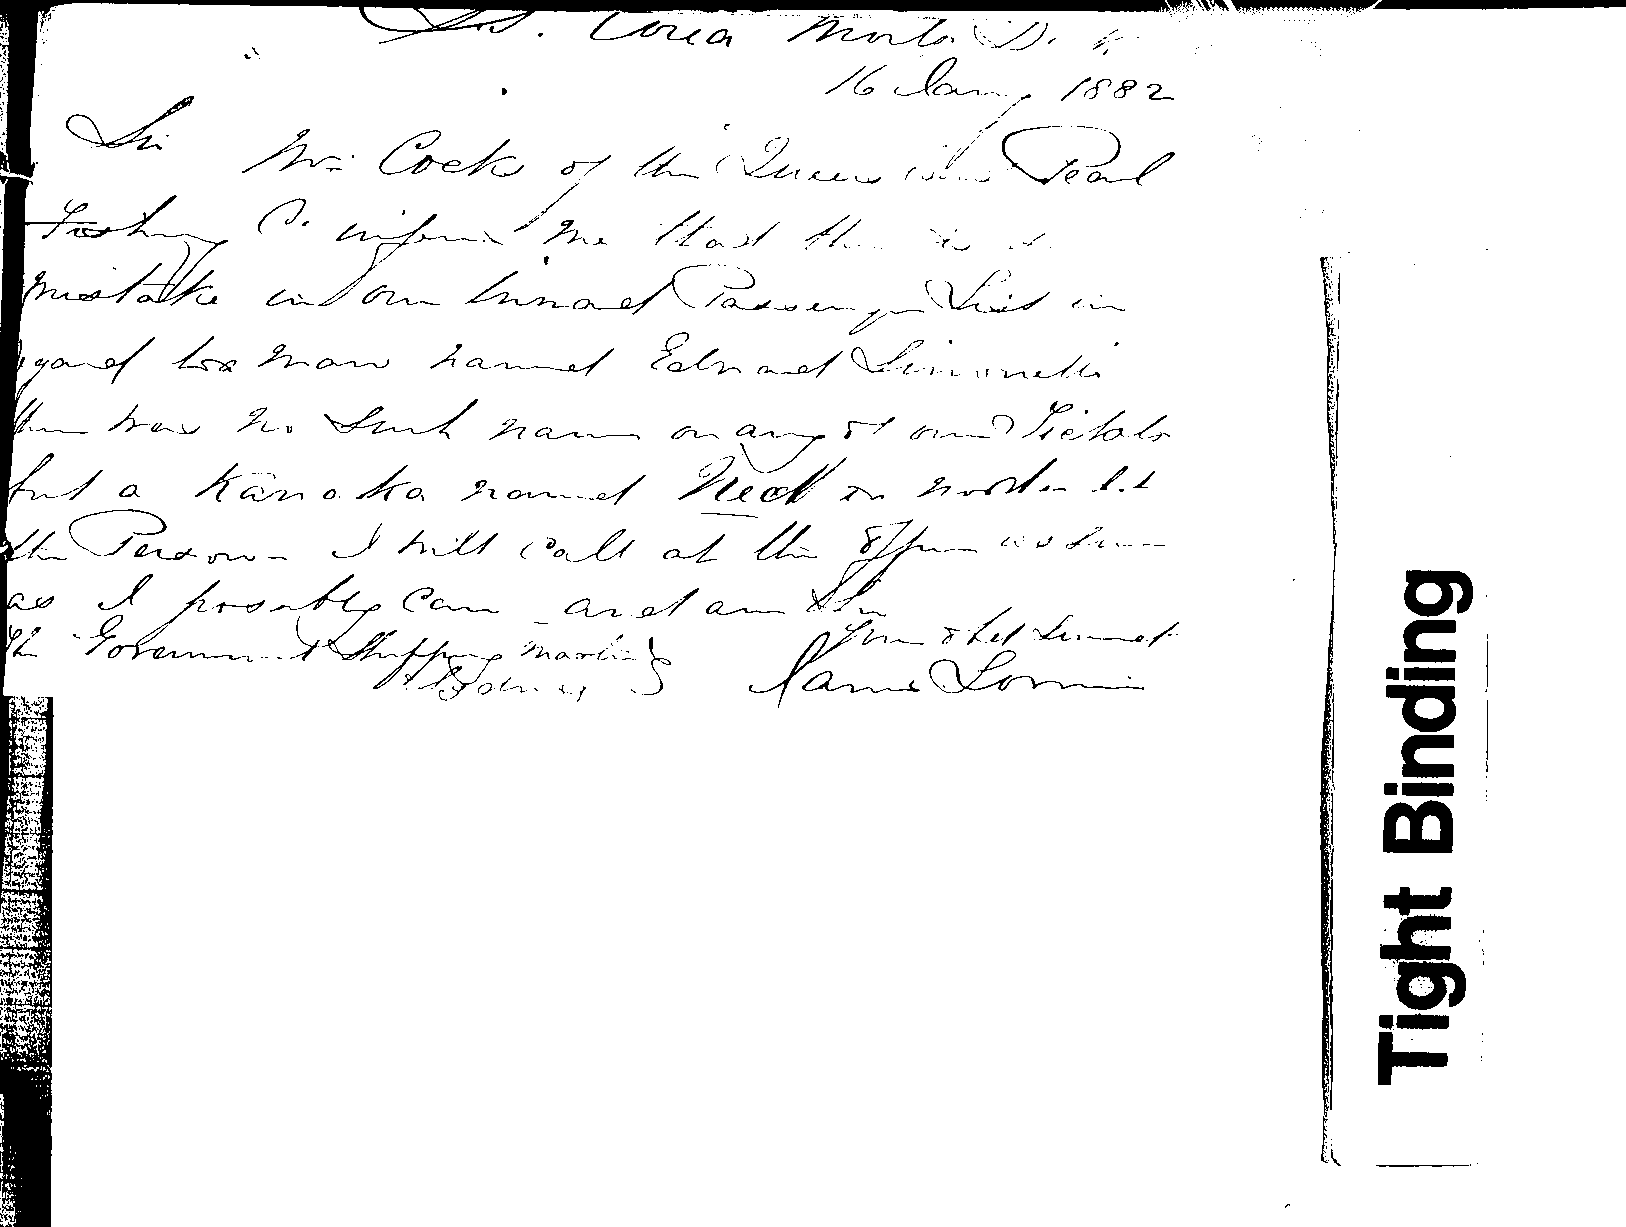 S.S. Corea Morts D.
16 Jany 1882
Sir Mr. Cock of the Queensland Pearl
Fishing Co inform me that there is a
mistake in our Inward Passenger List in
regard to a man named Edward Simonetti
there was no such name on any of our Tickets
but a Kanaka named Ned
the Person I will call at the Office as soon
as I possibly can and am Sir
The Government Shipping Master Your obt Servant
Sydney James
Tight Binding